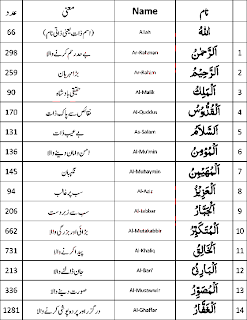 نام Name معنی عدد
اللهُ Allah (اسم ذات یعنی ذاتی نام) 66
1 اَلرَّحْمٰنُ Ar-Rahman بے حد رحم کرنے والا 298
2 اَلرَّحِيْمُ Ar-Rahim بڑا مہربان 259
3 اَلْمَلِكُ Al-Malik حقیقی بادشاہ 90
4 اَلْقُدُّوْسُ Al-Quddus نقائص سے پاک ذات 170
5 اَلسَّلَامُ As-Salam بے عیب ذات 131
6 اَلْمُؤْمِنُ Al-Mu'min امن و امان دینے والا 136
7 اَلْمُهَيْمِنُ Al-Muhaymin نگہبان 145
8 اَلْعَزِيْزُ Al-Aziz سب پر غالب 94
9 اَلْجَبَّارُ Al-Jabbar سب سے زبردست 206
10 اَلْمُتَكَبِّرُ Al-Mutakabbir بڑائی اور بزرگی والا 662
11 اَلْخَالِقُ Al-Khaliq پیدا کرنے والا 731
12 اَلْبَارِئُ Al-Bari' جان ڈالنے والا 213
13 اَلْمُصَوِّرُ Al-Musawwir صورت دینے والا 336
14 اَلْغَفَّارُ Al-Ghaffar درگزر اور پردہ پوشی کرنے والا 1281